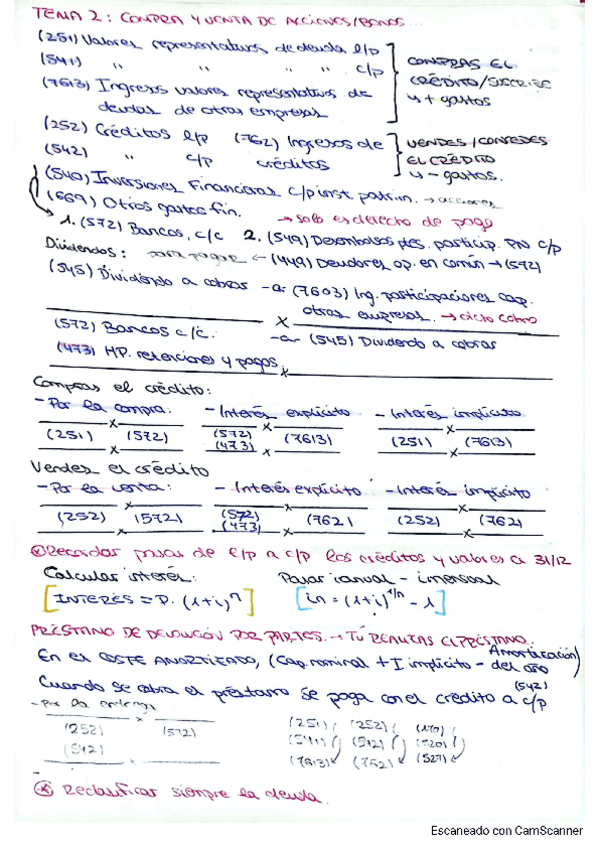 TEMA 2: COMPRA Y VENTA DE ACCIONES/BONOS...
(251) Valores representativos de deuda l/p
(541) " " " " c/p
COMPRAS EL
CRÉDITO/SUSCRIBE
↳ + gastos
(7613) Ingresos valores representativos de
deudas de otras empresas
(252) Créditos l/p (762) Ingresos de
(542) " c/p créditos
VENDES/CONCEDES
EL CRÉDITO
↳ - gastos.
(540) Inversiones Financieras c/p inst. patrim. → acciones
(669) Otros gastos fin.
→ solo es derecho de pago
1. (572) Bancos, c/c 2. (549) Desembolsos pdes. particip. PN c/p
Dividendos: para pagar ← (449) Deudores op. en común → (572)
(545) Dividendo a cobrar -a- (7603) Ing. participaciones cap.
otras empresas. → dicto cobro
x
(572) Bancos c/c. -a- (545) Dividendo a cobrar
(473) HP. retenciones y pagos
x
Compras el crédito:
- Por la compra: - Interés explícito - Interés implícito
x x x
(251) (572) (572) (7613) (251) (7613)
(473)
x x x
Vendes el crédito
- Por la venta: - Interés explícito - Interés implícito
x x x
(252) (572) (572) (762) (252) (762)
(473)
x x x
Recordar pasar de l/p a c/p los créditos y valores a 31/12
Calcular interés: Pasar ianual - imensual
[INTERÉS = P. (1+i)^n] [in = (1+i)^1/n - 1]
PRÉSTAMO DE DEVOLUCIÓN POR PARTES. → TÚ REALIZAS EL PRÉSTAMO.
En el COSTE AMORTIZADO, (Cap. nominal + I implícito - Amortización del año)
Cuando se cobra el préstamo se paga con el crédito a c/p (542)
- Por la entrega
x
(252) (572)
(542)
x
(251) (252) (170)
(541) (542) (520)
(7613) (762) (527)
(*) Reclasificar siempre la deuda.
Escaneado con CamScanner